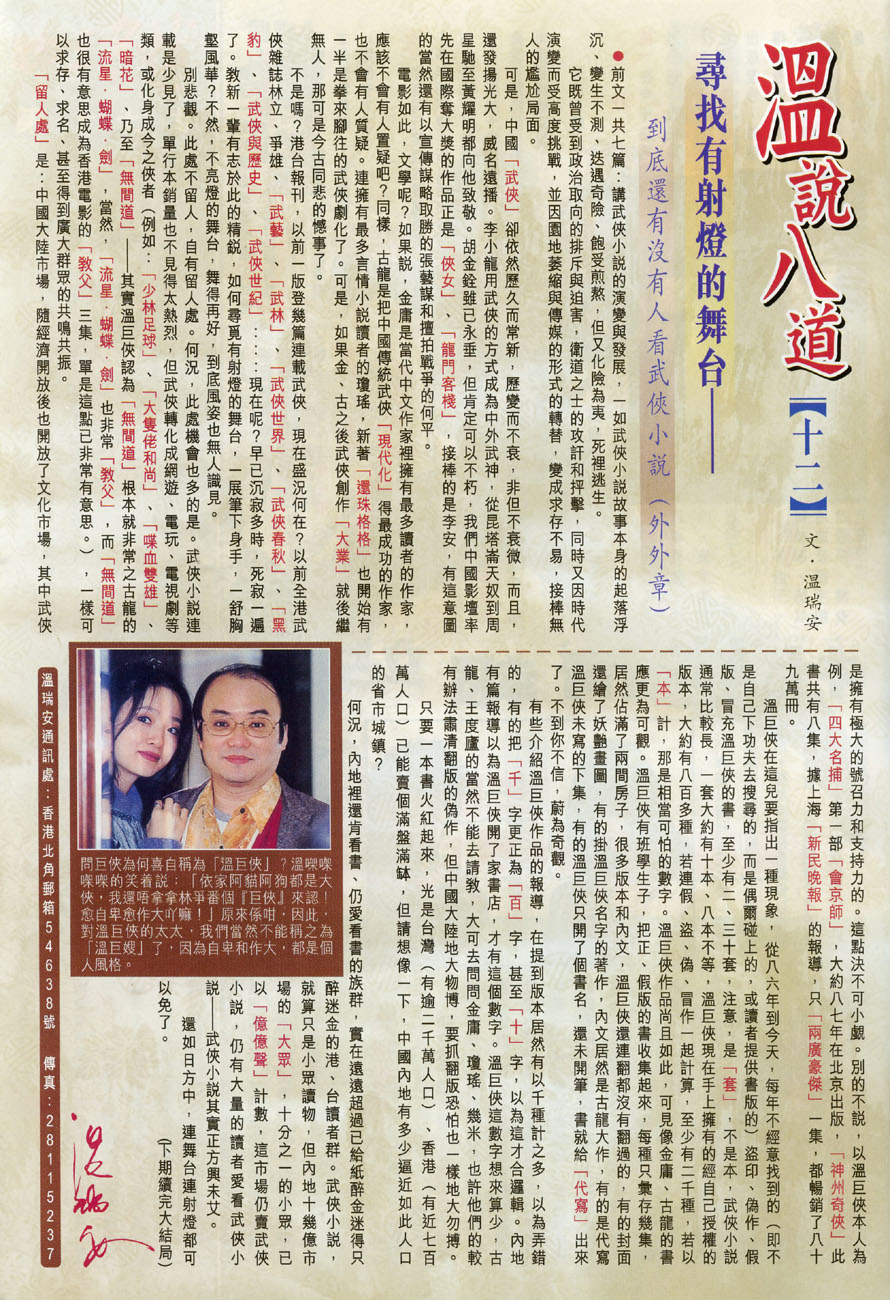 溫說八道【十二】
文·溫瑞安
尋找有射燈的舞台——
到底還有沒有人看武俠小說（外外章）
●前文一共七篇：講武俠小說的演變與發展，一如武俠小說故事本身的起落浮
沉、變生不測、迭遇奇險、飽受煎熬，但又化險為夷，死裡逃生。
它既曾受到政治取向的排斥與迫害，衛道之士的攻訐和抨擊，同時又因時代
演變而受高度挑戰，並因園地萎縮與傳媒的形式的轉替，變成求存不易，接棒無
人的尷尬局面。
可是，中國「武俠」卻依然歷久而常新，歷變而不衰，非但不衰微，而且，
還發揚光大，威名遠播。李小龍用武俠的方式成為中外武神，從昆塔崙天奴到周
星馳至黃耀明都向他致敬。胡金銓雖已永垂，但肯定可以不朽，我們中國影壇率
先在國際奪大獎的作品正是「俠女」、「龍門客棧」，接棒的是李安，有這意圖
的當然還有以宣傳謀略取勝的張藝謀和擅拍戰爭的何平。
電影如此，文學呢？如果說，金庸是當代中文作家裡擁有最多讀者的作家，
應該不會有人置疑吧？同樣，古龍是把中國傳統武俠「現代化」得最成功的作家，
也不會有人質疑。連擁有最多言情小說讀者的瓊瑤，新著「還珠格格」也開始有
一半是拳來腳往的武俠劇化了。可是，如果金、古之後武俠創作「大業」就後繼
無人，那可是今古同悲的憾事了。
不是嗎？港台報刊，以前一版登幾篇連載武俠，現在盛況何在？以前全港武
俠雜誌林立、爭雄，「武藝」、「武林」、「武俠世界」、「武俠春秋」、「黑
豹」、「武俠與歷史」、「武俠世紀」：：：現在呢？早已沉寂多時，死寂一遍
了。教新一輩有志於此的精銳，如何尋覓有射燈的舞台，一展筆下身手，一舒胸
壑風華？不然，不亮燈的舞台，舞得再好，到底風姿也無人識見。
別悲觀。此處不留人，自有留人處。何況，此處機會也多的是。武俠小說連
載是少見了，單行本銷量也不見得太熱烈，但武俠轉化成網遊、電玩、電視劇等
類，或化身成今之俠者（例如：「少林足球」、「大隻佬和尚」、「喋血雙雄」、
「暗花」、乃至「無間道」——其實溫巨俠認為「無間道」根本就非常之古龍的
「流星·蝴蝶·劍」，當然，「流星·蝴蝶·劍」也非常「教父」，而「無間道」
也很有意思成為香港電影的「教父」三集，單是這點已非常有意思。），一樣可
以求存、求名、甚至得到廣大群眾的共鳴共振。
「留人處」是：中國大陸市場，隨經濟開放後也開放了文化市場，其中武俠
是擁有極大的號召力和支持力的。這點決不可小覷。別的不說，以溫巨俠本人為
例，「四大名捕」第一部「會京師」，大約八七年在北京出版，「神州奇俠」此
書共有八集，據上海「新民晚報」的報導，只「兩廣豪傑」一集，都暢銷了八十
九萬冊。
溫巨俠在這兒要指出一種現象，從八六年到今天，每年不經意找到的（即不
是自己下功夫去搜尋的，而是偶爾碰上的，或讀者提供書版的）盜印、偽作、假
版、冒充溫巨俠的書，至少有二、三十套，注意，是「套」，不是本，武俠小說
通常比較長，一套大約有十本、八本不等，溫巨俠現在手上擁有的經自己授權的
版本，大約有八百多種，若連假、盜、偽、冒作一起計算，至少有二千種，若以
「本」計，那是相當可怕的數字。溫巨俠作品尚且如此，可見像金庸、古龍的書
應更為可觀。溫巨俠有班學生子，把正、假版的書收集起來，每種只彙存幾集，
居然佔滿了兩間房子，很多版本和內文，溫巨俠還連翻都沒有翻過的，有的封面
還繪了妖艷畫圖，有的掛溫巨俠名字的著作，內文居然是古龍大作，有的是代寫
溫巨俠未寫的下集，有的溫巨俠只開了個書名，還未開筆，書就給「代寫」出來
了。不到你不信，蔚為奇觀。
有些介紹溫巨俠作品的報導，在提到版本居然有以千種計之多，以為弄錯
的，有的把「千」字更正為「百」字，甚至「十」字，以為這才合邏輯。內地
有篇報導以為溫巨俠開了家書店，才有這個數字。溫巨俠這數字想來算少，古
龍、王度廬的當然不能去請教，大可去問問金庸、瓊瑤、幾米，也許他們的較
有辦法肅清翻版的偽作，但中國大陸地大物博，要抓翻版恐怕也一樣地大勿搏。
只要一本書火紅起來，光是台灣（有逾二千萬人口）、香港（有近七百
萬人口）已能賣個滿盤滿缽，但請想像一下，中國內地有多少逼近如此人口
的省市城鎮？
何況，內地裡還肯看書、仍愛看書的族群，實在遠遠超過已給紙醉金迷得只
醉迷金的港、台讀者群。武俠小說，
就算只是小眾讀物，但內地十幾億市
場的「大眾」，十分之一的小眾，已
以「億億聲」計數，這市場仍賣武俠
小說，仍有大量的讀者愛看武俠小
說——武俠小說其實正方興未艾。
還如日方中，連舞台連射燈都可
以免了。
（下期續完大結局）
問巨俠為何喜自稱為「溫巨俠」？溫㗎㗎
㗎㗎的笑着說：「依家阿貓阿狗都是大
俠，我還唔拿拿林爭番個『巨俠』來認！
愈自卑愈作大吖嘛！」原來係咁，因此，
對溫巨俠的太太，我們當然不能稱之為
「溫巨嫂」了，因為自卑和作大，都是個
人風格。
溫瑞安通訊處：香港北角郵箱54638號 傳真：28115237
溫瑞安